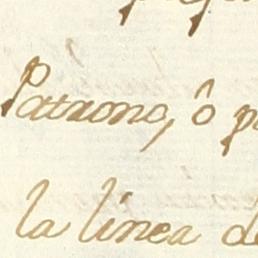 Patrono, ô p
la linea de